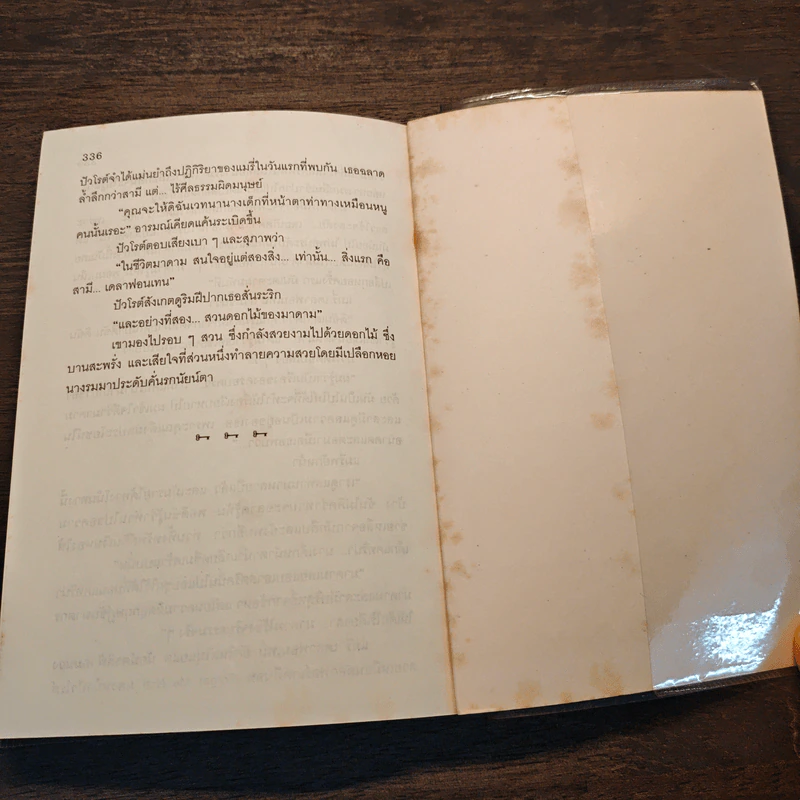 336
ปัวโรต์จำได้แม่นยำถึงปฏิกิริยาของแมรี่ในวันแรกที่พบกัน เธอฉลาด
ล้ำลึกกว่าสามี แต่... ไร้ศีลธรรมผิดมนุษย์
“คุณจะให้ดิฉันเวทนานางเด็กที่หน้าตาท่าทางเหมือนหนู
คนนั้นเรอะ” อารมณ์เคียดแค้นระเบิดขึ้น
ปัวโรต์ตอบเสียงเบา ๆ และสุภาพว่า
“ในชีวิตมาดาม สนใจอยู่แต่สองสิ่ง... เท่านั้น... สิ่งแรก คือ
สามี... เดลาฟอนเทน”
ปัวโรต์สังเกตดูริมฝีปากเธอสั่นระริก
“และอย่างที่สอง... สวนดอกไม้ของมาดาม”
เขามองไปรอบ ๆ สวน ซึ่งกำลังสวยงามไปด้วยดอกไม้ ซึ่ง
บานสะพรั่ง และเสียใจที่ส่วนหนึ่งทำลายความสวยโดยมีเปลือกหอย
นางรมมาประดับคั่นรกนัยน์ตา